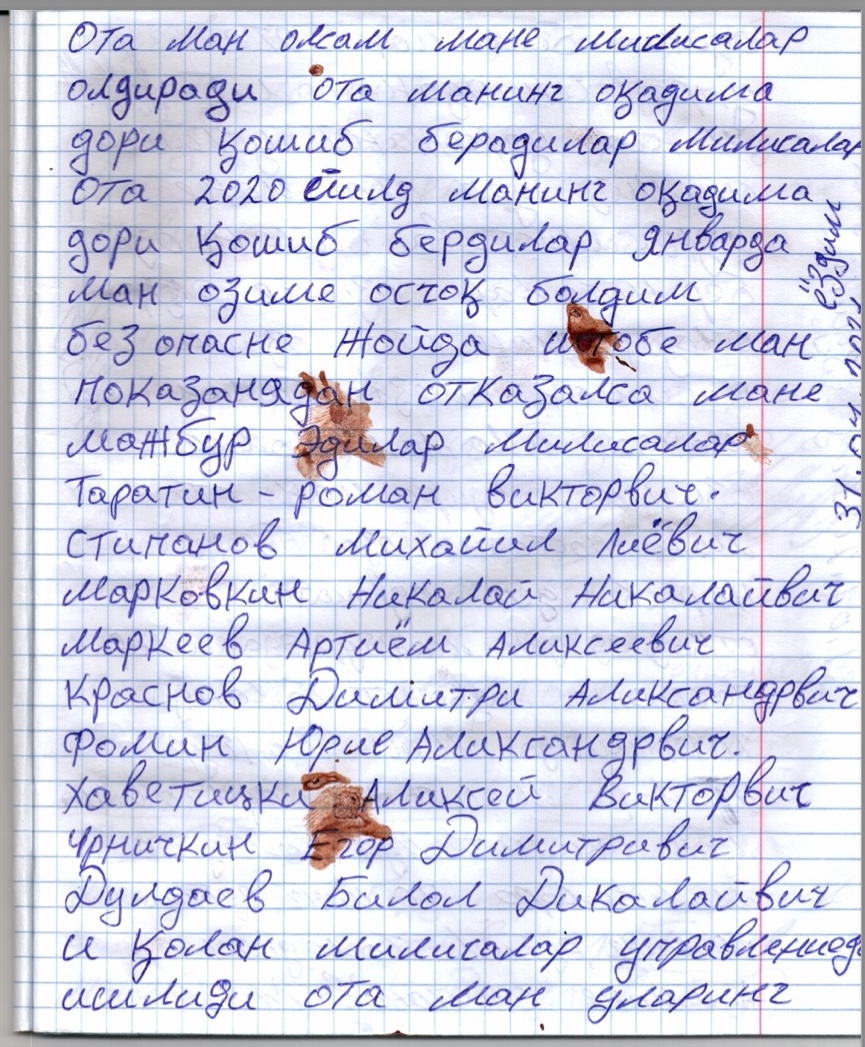 Ота ман олсам мане милисалар
олдиради ота манинг оқадима
дори қошиб берадилар милисалар
ота 2020 йилд манинг оқадима
дори қошиб бердилар январда
ман озиме осчоқ болдим
без опасне жойда исобе ман
показанядан отказалса мане
мажбур эдилар милисалар
Таратин - роман викторвич.
Стипанов Михайил Лиёвич
Марковкин Никалай Никалайвич
Маркеев Артиём Аликсеевич
Краснов Димитри Аликсандрвич
Фомин Юрие Аликсандрвич.
Хаветицки Аликсей Викторвич
Чрничкин Егор Димитривич
Дулдаев Билол Дикалайвич
и қолан милисалар управленияд
ишлиди ота ман уларинг
ёздим
31